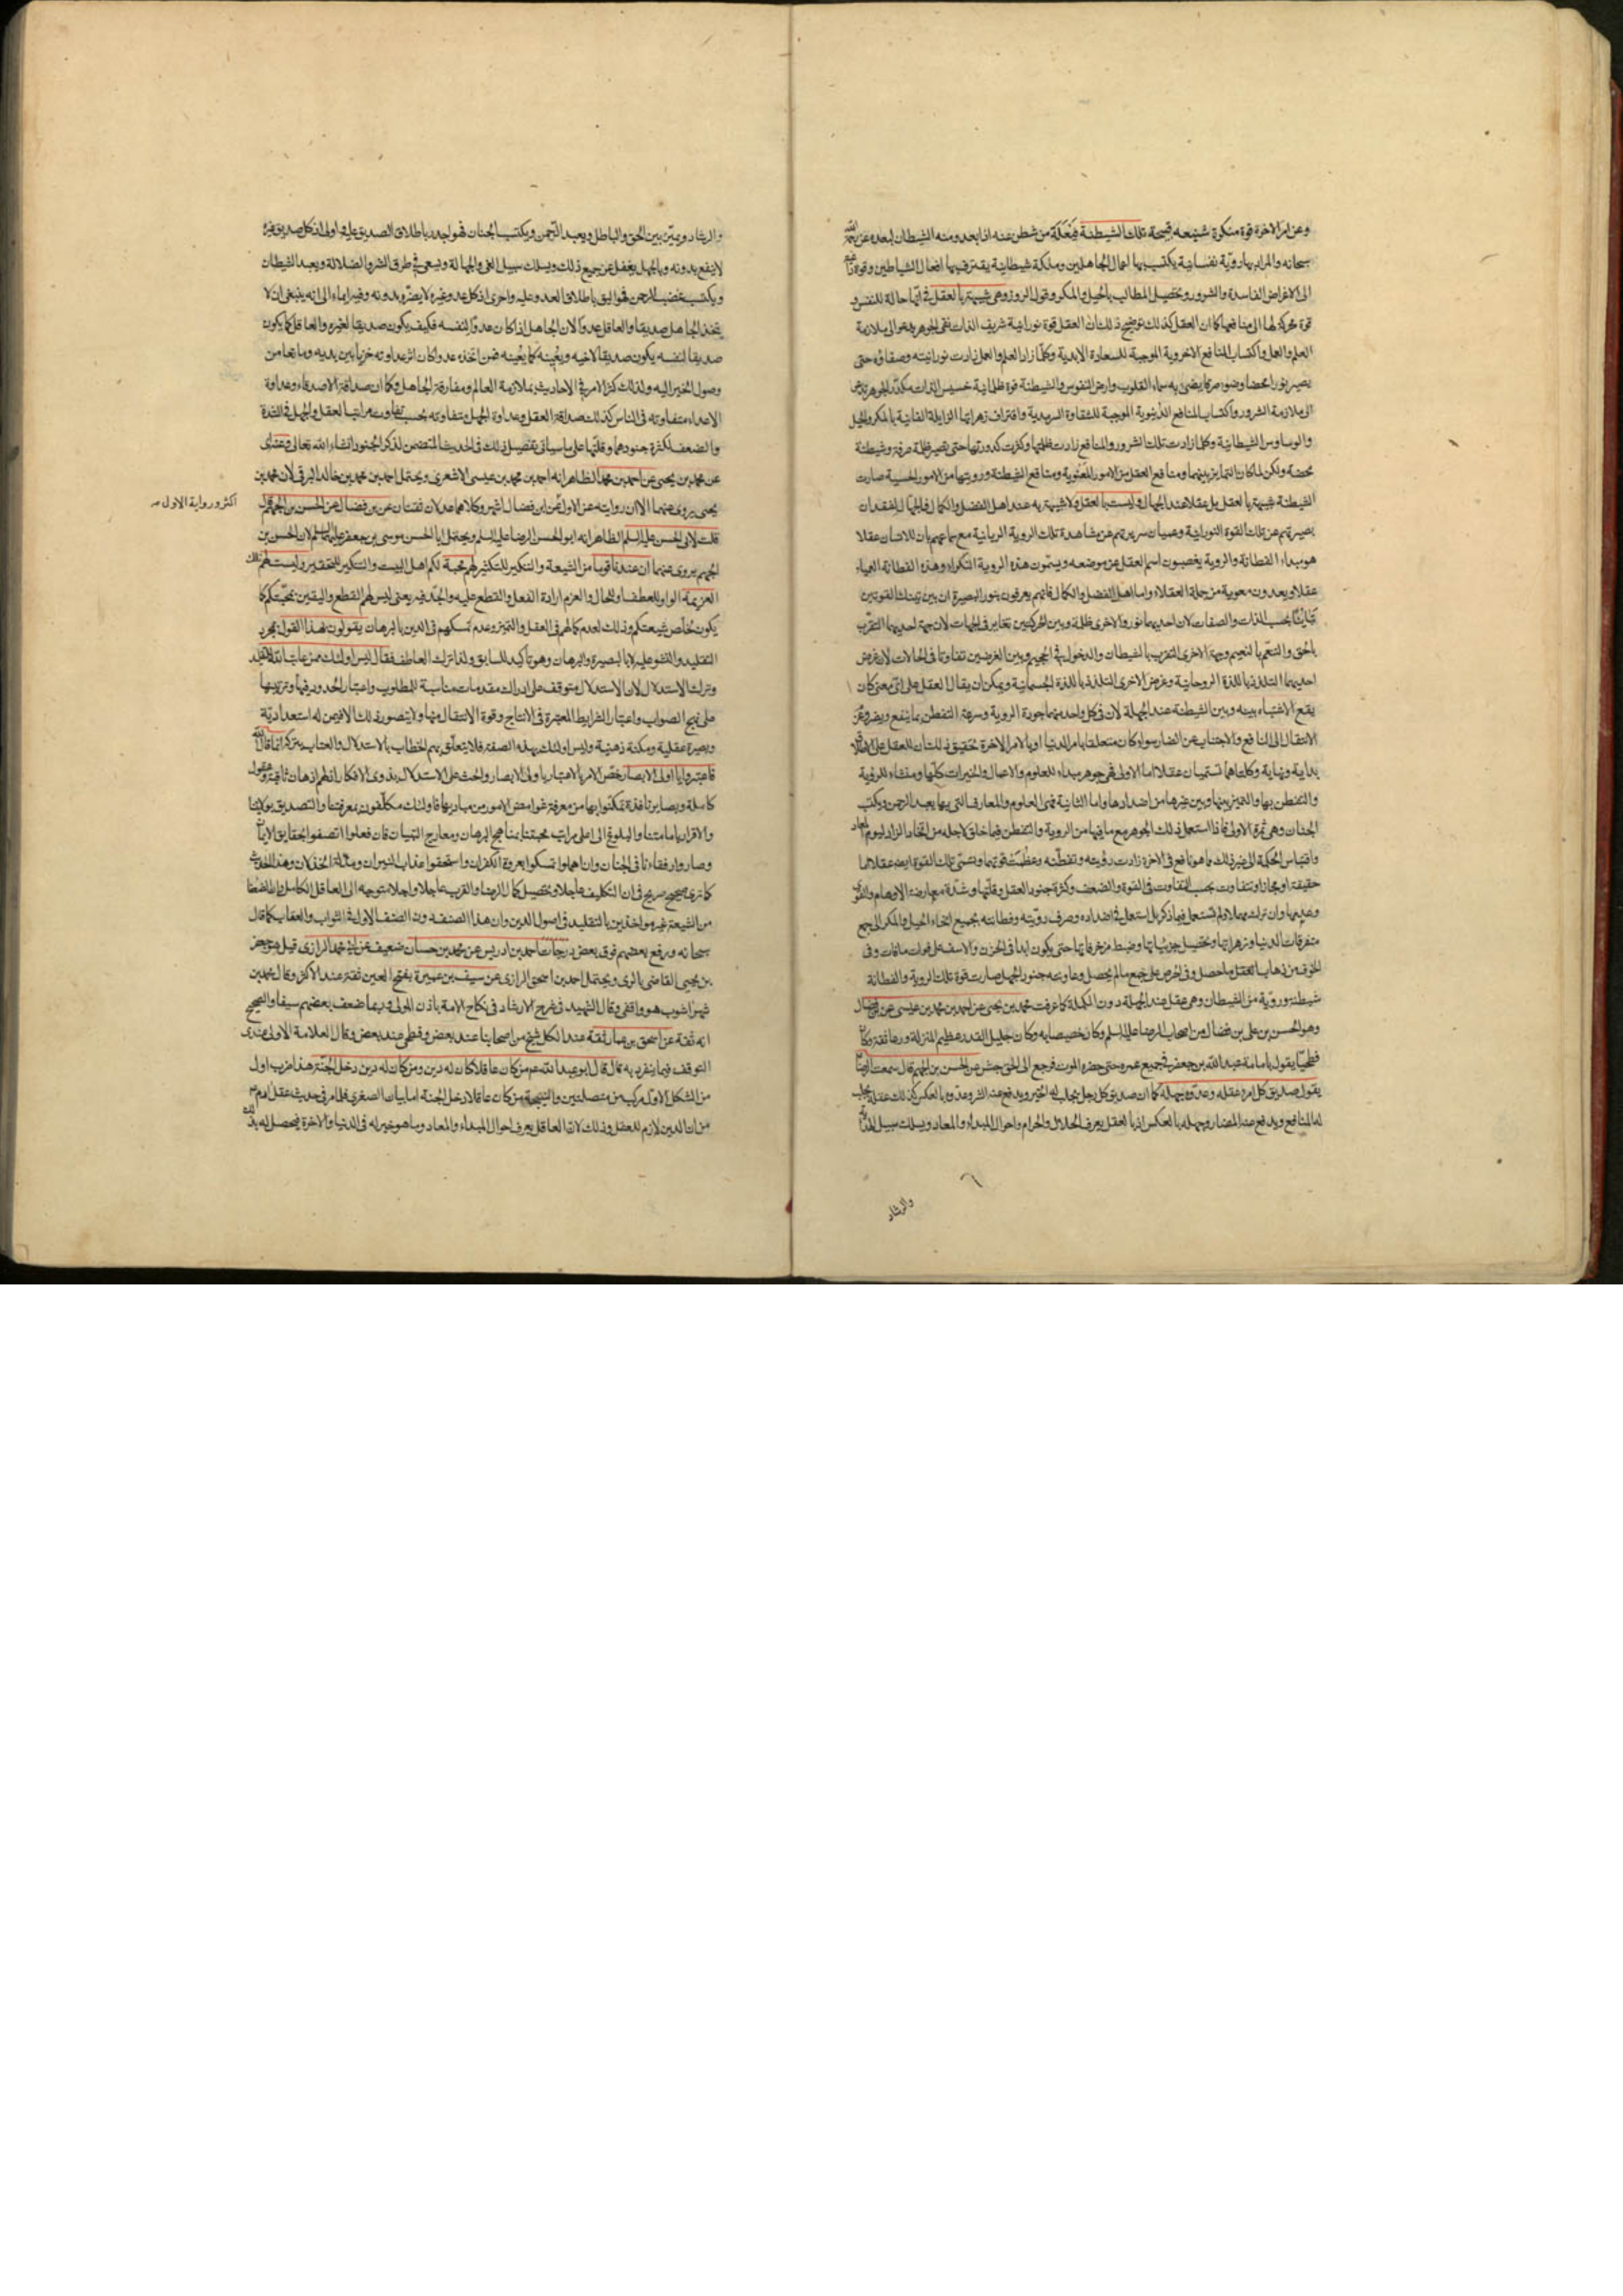 وعن امر الاخرة قوة منكرة شنيعة قبيحة تلك الشيطنة فيعلة من شطن عنه اذا بعد ومنه الشيطان لبعده عن رحمة الله
سبحانه والمراد بها روية نفسانية يكتسب بها اعمال الجاهلين وملكة شيطانية يقترف بها افعال الشياطين وقوة
الى الاغراض الفاسدة والشرور وتحصيل المطالب بالحيل والمكر وقول الزور وهى شبيهة بالعقل فى انها حالة للنفس و
قوة محركة لها الى منافعها كما ان العقل كذلك توضيح ذلك ان العقل قوة نورانية شريف الذات نقى الجوهر يدعو الى ملازمة
العلم والعمل واكتساب المنافع الاخروية الموجبة للسعادة الابدية وكلما زاد العلم والعمل زادت نورانيته وصفاؤه حتى
يصير نورا محضا وضوءا صرفا يضىء به سماء القلوب وارض النفوس والشيطنة قوة ظلمانية خسيس الذات مكدر الجوهر
الى ملازمة الشرور واكتساب المنافع الدنيوية الموجبة للشقاوة السرمدية واقتراف زهراتها الزايلة الفانية بالمكر والحيل
والوساوس الشيطانية وكلما ازدادت تلك الشرور والمنافع زادت ظلمتها وكثرت كدورتها حتى تصير ظلمة صرفة وشيطنة
محضة ولكن لما كان التمايز بينهما ومنافع العقل من الامور المعنوية ومنافع الشيطنة ورويتها من الامور الحسية صارت
الشيطنة شبيهة بالعقل بل عقلا عند الجهال وليست بالعقل ولا شبيهة به عند اهل الفضل والكمال فالجهال لفقدان
بصيرتهم عن تلك القوة النورانية وعميان سريرتهم عن مشاهدة تلك الروية الربانية مع سماعهم بان للانسان عقلا
هو مبداء الفطانة والروية يغصبون اسم العقل عن موضعه ويسمون هذه الروية النكراء وهذه الفطانة العمياء
عقلا ويعدون معوية من جملة العقلاء واما اهل الفضل والكمال فانهم يعرفون بنور البصيرة ان بين تينك القوتين
تباينا بحسب الذات والصفات لان احديهما نور والاخرى ظلمة وبين الحركتين تغاير فى الجهات لان جهة احديهما التقرب
بالحق والتنعم بالنعيم وجهة الاخرى التقرب بالشيطان والدخول فى الجحيم وبين الغرضين تفاوتا فى الحالات لان غرض
احديهما التلذذ باللذة الروحانية وغرض الاخرى التلذذ باللذة الجسمانية ويمكن ان يقال العقل على اى معنى كان
يقع الاشتباه بينه وبين الشيطنة عند الجهلة لان فى كل واحد منهما جودة الروية وسرعة التفطن بما ينفع ويضر
الانتقال الى النافع والاجتناب عن الضار سواء كان متعلقا بامر الدنيا او بالامر الاخرة تحقيق ذلك ان للعقل
بداية ونهاية وكلتاهما تسميان عقلا اما الاولى فهى جوهر مبداء للعلوم والاعمال والخيرات كلها ومنشاء للروية
والتفطن بها والتمييز بينها وبين غيرها من اضدادها واما الثانية فهى العلوم والمعارف التى بها يعبد الرحمن ويكتسب
الجنان وهى ثمرة الاولى فاذا استعمل ذلك الجوهر مع ما فيها من الروية والتفطن فيما خلق لاجله من اتخاذ الزاد ليوم المعاد
واقتباس الحكمة الى غير ذلك مما هو نافع فى الاخرة زادت رويته وتفطنه وعظمت قوتهما وتسمى تلك القوة ايضا عقلا اما
حقيقة او مجازا وتتفاوت بحسب التفاوت فى القوة والضعف وكثرة جنود العقل وقلتها وشدة معارضة الاوهام والقوى
وضدها وان ترك مهملا ولم يستعمل فيما ذكر بل استعمل فى اضداده وصرف رويته وفطانته بجميع انحاء الحيل والمكر الى جمع
متفرقات الدنيا وزهراتها وتحصيل جزئياتها وضبط مزخرفاتها حتى يكون ابدا فى الحزن والاسف على فوات ما فات وفى
الخوف من ذهاب ما حصل وفى الحرص على جمع ما لم يحصل وعاونته جنود الجهل صارت قوة تلك الروية والفطانة
شيطنة وروية من الشيطان وهى عقل عند الجهلة دون الكملة كما عرفت محمد بن يحيى عن احمد بن محمد بن عيسى عن ابن فضال
وهو الحسن بن على بن فضال من اصحاب الرضا عليه السلم وكان خصيصا به وكان جليل القدر عظيم المنزلة ورعا ثقة وكان
فطحيا يقول بامامة عبد الله بن جعفر فى جميع عمره حتى حضره الموت فرجع الى الحق عن الحسن بن الجهم قال سمعت الرضا
يقول صديق كل امرء عقله وعدوه جهله كما ان صديق كل رجل يجلب له الخير ويدفع عنه الشر وعدوه بالعكس كذلك عقله يجلب
له المنافع ويدفع عنه المضار وجهله بالعكس اذ بالعقل يعرف الحلال والحرام واحوال المبداء والمعاد ويسلك سبيل
والرشاد
والرشاد ويميز بين الحق والباطل ويعبد الرحمن ويكتسب الجنان فهو اجدر باطلاق الصديق عليه واولى اذ كل صديق غيره
لا ينفع بدونه وبالجهل يغفل عن جميع ذلك ويسلك سبيل الغى والجهالة ويسعى فى طرق الشر والضلالة ويعبد الشيطان
ويكتسب غضب الرحمن فهو اليق باطلاق العدو عليه واحرى اذ كل عدو غيره لا يضر بدونه وفيه ايماء الى انه ينبغى ان لا
يتخذ الجاهل صديقا والعاقل عدوا لان الجاهل اذا كان عدوا لنفسه فكيف يكون صديقا لغيره والعاقل كما يكون
صديقا لنفسه يكون صديقا لاخيه ويعينه كما يعينه فمن اتخذه عدوا كان اثر عداوته خزيا بين يديه ومانعا من
وصول الخير اليه ولذلك كثر الامر فى الاحاديث بملازمة العالم ومفارقة الجاهل وكما ان صداقة الاصدقاء وعداوة
الاعداء متفاوتة فى الناس كذلك صداقة العقل وعداوة الجهل متفاوتة بحسب تفاوت مراتب العقل والجهل فى الشدة
والضعف لكثرة جنودهما وقلتها على ما سياتى تفصيل ذلك فى الحديث المتضمن لذكر الجنود انشاء الله تعالى وعنه
عن محمد بن يحيى عن احمد بن محمد الظاهر انه احمد بن محمد بن عيسى الاشعرى ويحتمل احمد بن محمد بن خالد البرقى لان محمد بن
يحيى يروى عنهما الا ان روايته عن الاول عن ابن فضال اشهر وكلاهما عدلان ثقتان عن بن فضال عن الحسن بن الجهم قال
اكثر ورواية الاول
قلت لابى الحسن عليه السلم الظاهر انه ابو الحسن الرضا عليه السلم ويحتمل ابا الحسن موسى بن جعفر عليهما السلم لان الحسن بن
الجهم يروى عنهما ان عندنا قوما من الشيعة والتنكير للتكثير لهم محبة لكم اهل البيت والتنكير للتحقير وليست لهم تلك
العزيمة الواو للعطف او للحال والعزم ارادة الفعل والقطع عليه والجد فيه يعنى ليس لهم القطع واليقين بمحبتكم كما
يكون لخلص شيعتكم وذلك لعدم كمالهم فى العقل والتميز وعدم تمسكهم فى الدين بالبرهان يقولون بهذا القول بمجرد
التقليد والنشو عليه لا بالبصيرة والبرهان وهو تأكيد للسابق ولذا ترك العاطف فقال ليس اولئك ممن عاتب الله
وترك الاستدلال لان الاستدلال متوقف على ادراك مقدمات مناسبة للمطلوب واعتبار الحدود فيها وترتيبها
على نهج الصواب واعتبار الشرايط المعتبرة فى الانتاج وقوة الانتقال منها ولا يتصور ذلك الا فيمن له استعداديّة
وبصيرة عقلية ومكنة ذهنية وليس اولئك بهذه الصفة فلا يتعلق بهم الخطاب بالاستدلال والعتاب بتركه انما قال الله
فاعتبروا يا اولى الابصار خص الامر بالاعتبار باولى الابصار والحث على الاستدلال بذوى الافكار اذ لهم اذهان ثاقبة وعقول
كاملة وبصاير نافذة تمكنوا بها من معرفة غوامض الامور من مباديها فاولئك مكلفون بمعرفتنا والتصديق بولايتنا
والاقرار بامامتنا والبلوغ الى اعلى مراتب محبتنا بمناهج البرهان ومعارج التبيان فان فعلوا اتصفوا بحقايق الايمان
وصاروا رفقاءنا فى الجنان وان اهملوا تمسكوا بعروة الكفران واستحقوا عذاب النيران ومذلة الخذلان وهذا الحديث
كما ترى صحيح صريح فى ان التكليف عاجلا وتحصيل كمال الرضا والقرب عاجلا واجلا متوجه الى العاقل الكامل
من الشيعة غير مواخذين بالتقليد فى اصول الدين وان هذا الصنف دون الصنف الاول فى الثواب والعقاب كما قال
سبحانه ورفع بعضهم فوق بعض درجات احمد بن ادريس عن محمد بن حسان ضعيف عن ابى محمد الرازى قيل هو جعفر
بن يحيى القاضى بالرى ويحتمل احمد بن اسحق الرازى عن سيف بن عميرة بفتح العين ثقة عند الاكثر وقال محمد بن
شهراشوب هو واقفى وقال الشهيد فى شرح الارشاد فى نكاح الامة باذن المولى وربما ضعف بعضهم سيفا والصحيح
انه ثقة عن اسحق بن عمار ثقة عند الكل شيخ من اصحابنا عند بعض وفطحى عند بعض وقال العلامة الاولى عندى
التوقف فيما ينفرد به قال قال ابو عبد الله عم من كان عاقلا كان له دين ومن كان له دين دخل الجنة هذا ضرب اول
من الشكل الاول مركب من متصلتين والنتيجة من كان عاقلا دخل الجنة اما بيان الصغرى فلما مر فى حديث عقل ادم عم
من ان الدين لازم للعقل وذلك لان العاقل يعرف احوال المبداء والمعاد وما هو خير له فى الدنيا والاخرة فيحصل له